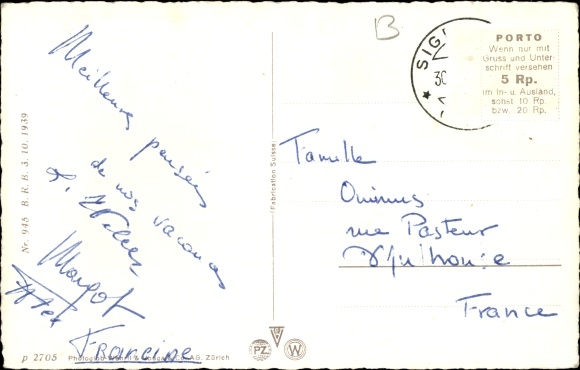 B
SIG
30
PORTO
Wenn nur mit
Gruss und Unter-
schrift versehen
5 Rp.
im In- u. Ausland,
sonst 10 Rp.
bzw. 20 Rp.
Meilleures pensées
de nos vacances
Margot
Francine
Nr. 945 B. R. B. 3. 10. 1939
Fabrication Suisse
Famille
rue Pasteur
France
p 2705
AG. Zürich
PZ
W